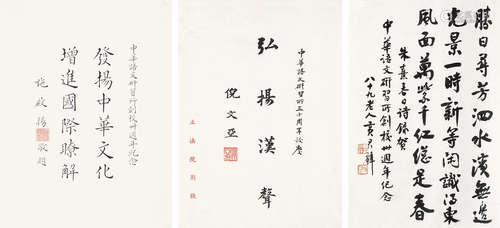 中華語文研習所創校卅週年紀念
發揚中華文化
增進國際瞭解
施啟揚敬題
中華語文研習所三十周年校慶
弘揚漢聲
倪文亞
立法院用牋
勝日尋芳泗水濱無邊
光景一時新等閒識得東
風面萬紫千紅總是春
朱熹春日詩錄賀
中華語文研習所創校卅週年紀念
八十九老人黃君璧